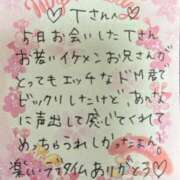 ♡Tさんへ♡
5日お会いしたTさん
お若いイケメンお兄さんが
とってもエッチなドM君で
ビックリしたけど、あんなに
声出して感じてくれて
めっちゃうれしかったまぁす。
楽しいプチタイムありがとう♡